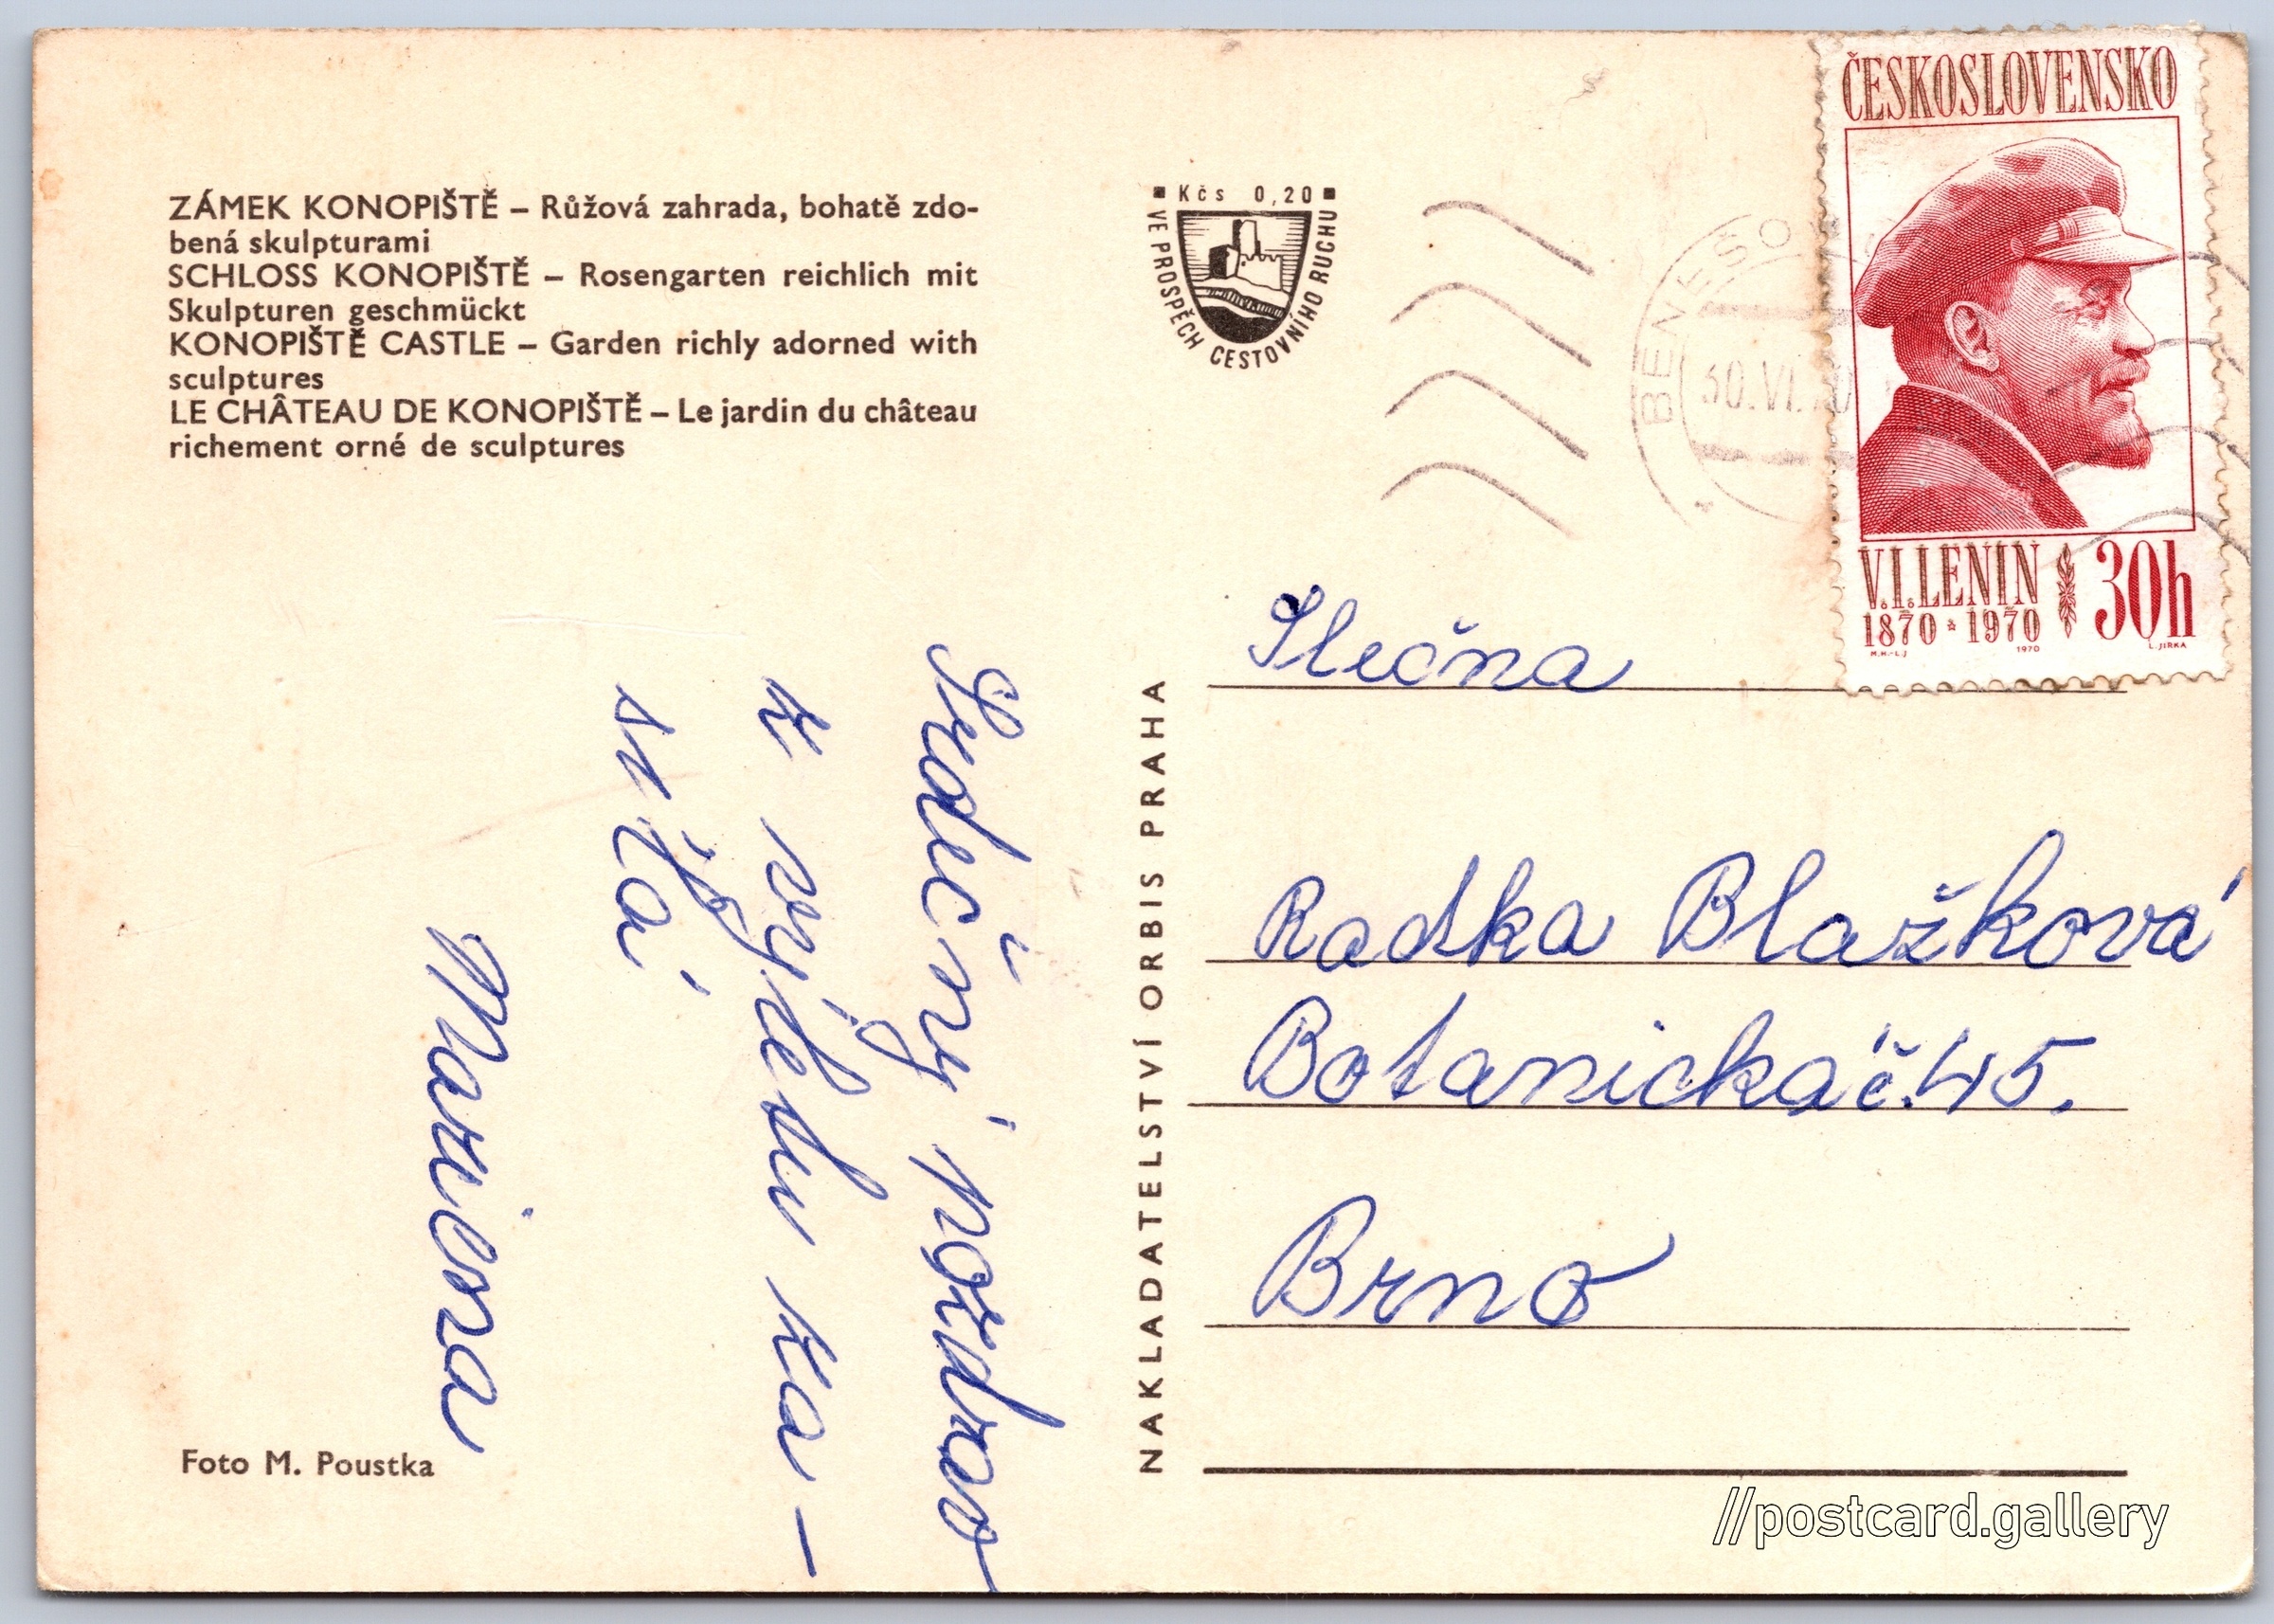 ZÁMEK KONOPIŠTĚ – Růžová zahrada, bohatě zdo-
bená skulpturami
SCHLOSS KONOPIŠTĚ – Rosengarten reichlich mit
Skulpturen geschmückt
KONOPIŠTĚ CASTLE – Garden richly adorned with
sculptures
LE CHÂTEAU DE KONOPIŠTĚ – Le jardin du château
richement orné de sculptures
Srdečný pozdrav
z výletu za-
sílá
Marcena
Foto M. Poustka
NAKLADATELSTVÍ ORBIS PRAHA
Kčs 0,20
VE PROSPĚCH CESTOVNÍHO RUCHU
BENEŠO
30.VI.
ČESKOSLOVENSKO
V.I.LENIN 30h
1870 * 1970
M.H.-L.J 1970 L.JIRKA
Slečna
Radka Blažková
Botanická č.45.
Brno
//postcard.gallery